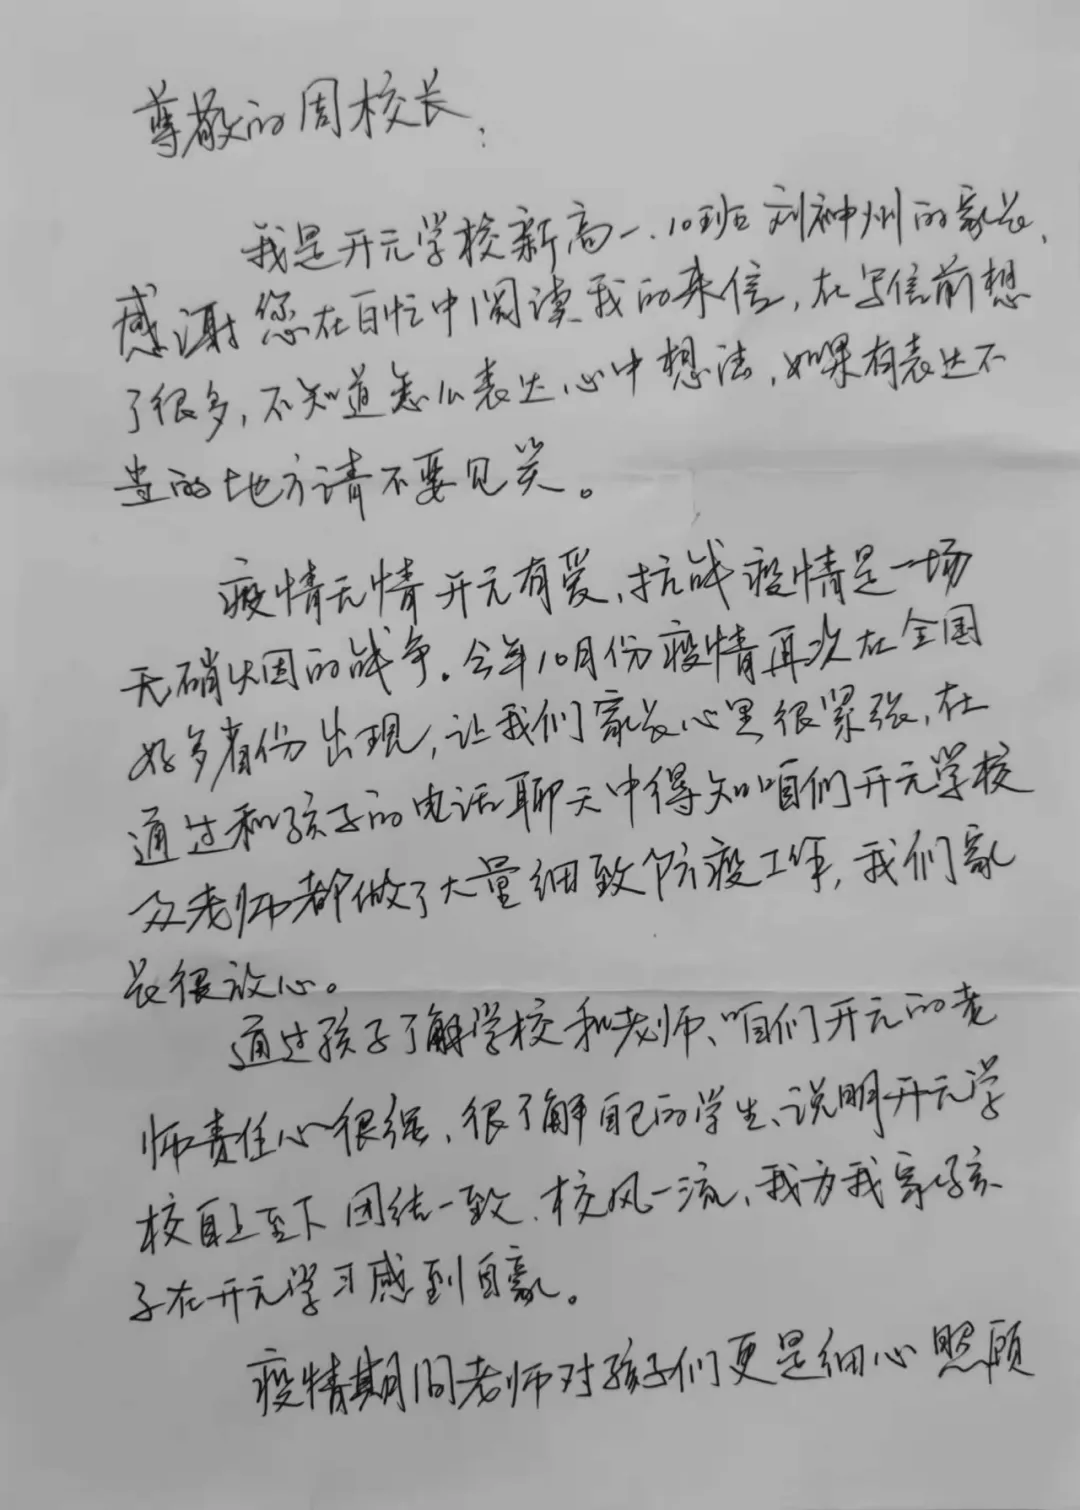 尊敬的周校长：
我是开元学校新高一.10班刘神州的家长，
感谢您在百忙中阅读我的来信，在写信前想
了很多，不知道怎么表达心中想法，如果有表达不
当的地方请不要见笑。
疫情无情开元有爱，抗战疫情是一场
无硝火因的战争。今年10月份疫情再次在全国
好多省份出现，让我们家长心里很紧张，在
通过和孩子的电话聊天中得知咱们开元学校
及老师都做了大量细致防疫工作，我们家
长很放心。
通过孩子了解学校和老师、咱们开元的老
师责任心很强、很了解自己的学生、说明开元学
校自上至下团结一致、校风一流、我为我家孩
子在开元学习感到自豪。
疫情期间老师对孩子们更是细心照顾